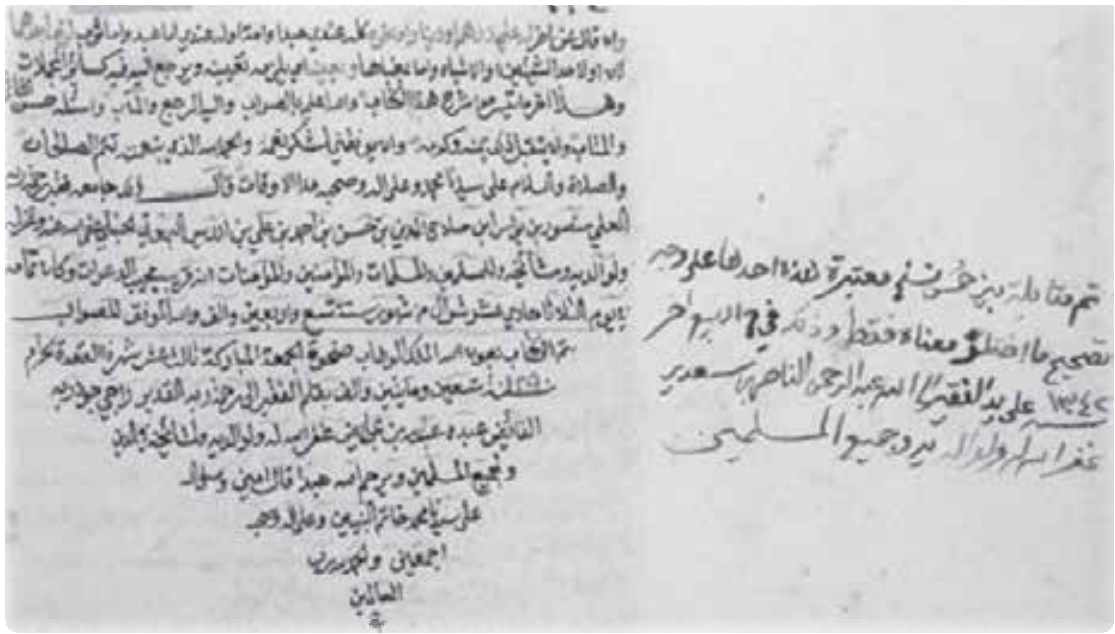 وان قال
لان او لاحد الشيئين والاشباه وما بمعناها
وهذا اخر ما تيسر من شرح هذا الكتاب والله اعلم بالصواب واليه المرجع والمآب واسئله حسن
والمتاب وان يتقبل بمنه وكرمه وان يوفقني لشكر نعمه والحمد لله الذي بنعمته تتم الصالحات
والصلاة والسلام على سيدنا محمد وعلى اله وصحبه مدا الاوقات قال جامعه فقير رحمة ربه
العلي منصور بن يونس ابن صلاح الدين بن حسن بن احمد بن علي بن ادريس البهوتي الحنبلي عفى الله عنه وغفر له
ولوالديه ومشائخه وللمسلمين والمسلمات والمؤمنين والمؤمنات انه قريب مجيب الدعوات وكان تمامه
يوم الثلاثا حادي عشر شوال من شهور سنة تسع واربعين والف والله الموفق للصواب
تم الكتاب بعون الله الملك الوهاب ضحوة الجمعة المباركة ثالث عشر شهر ذي القعدة الحرام
سنة تسعين ومايتين والف بقلم الفقير الى رحمة ربه القدير راجي جود ربه
الفائض عبده بن غفر الله له ولوالديه ولمشائخه
وجميع المسلمين ويرحم الله عبدا قال امين وصلى الله
على سيدنا محمد خاتم النبيين وعلى اله وصحبه
اجمعين والحمد لله رب
العالمين
تم مقابلة بين خمس نسخ معتبرة هذه احداها على وجه
تصحيح ما اختلف معناه فقط وذلك في ربيع اخر
١٣٤٢ سنه على يد الفقير الى الله عبد الرحمن الناصر بن سعدي
غفر الله له ولوالديه وجميع المسلمين